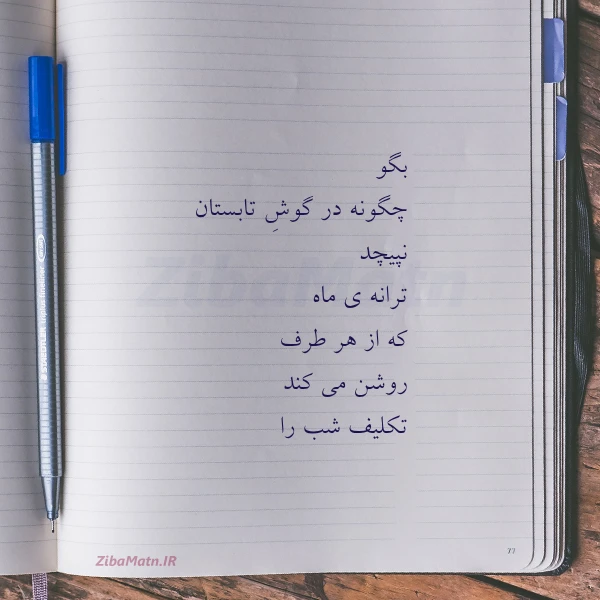 بگو
چگونه در گوشِ تابستان
نپیچد
ترانه ی ماه
که از هر طرف
روشن می کند
تکلیف شب را
ZibaMatn
ZibaMatn.IR
77